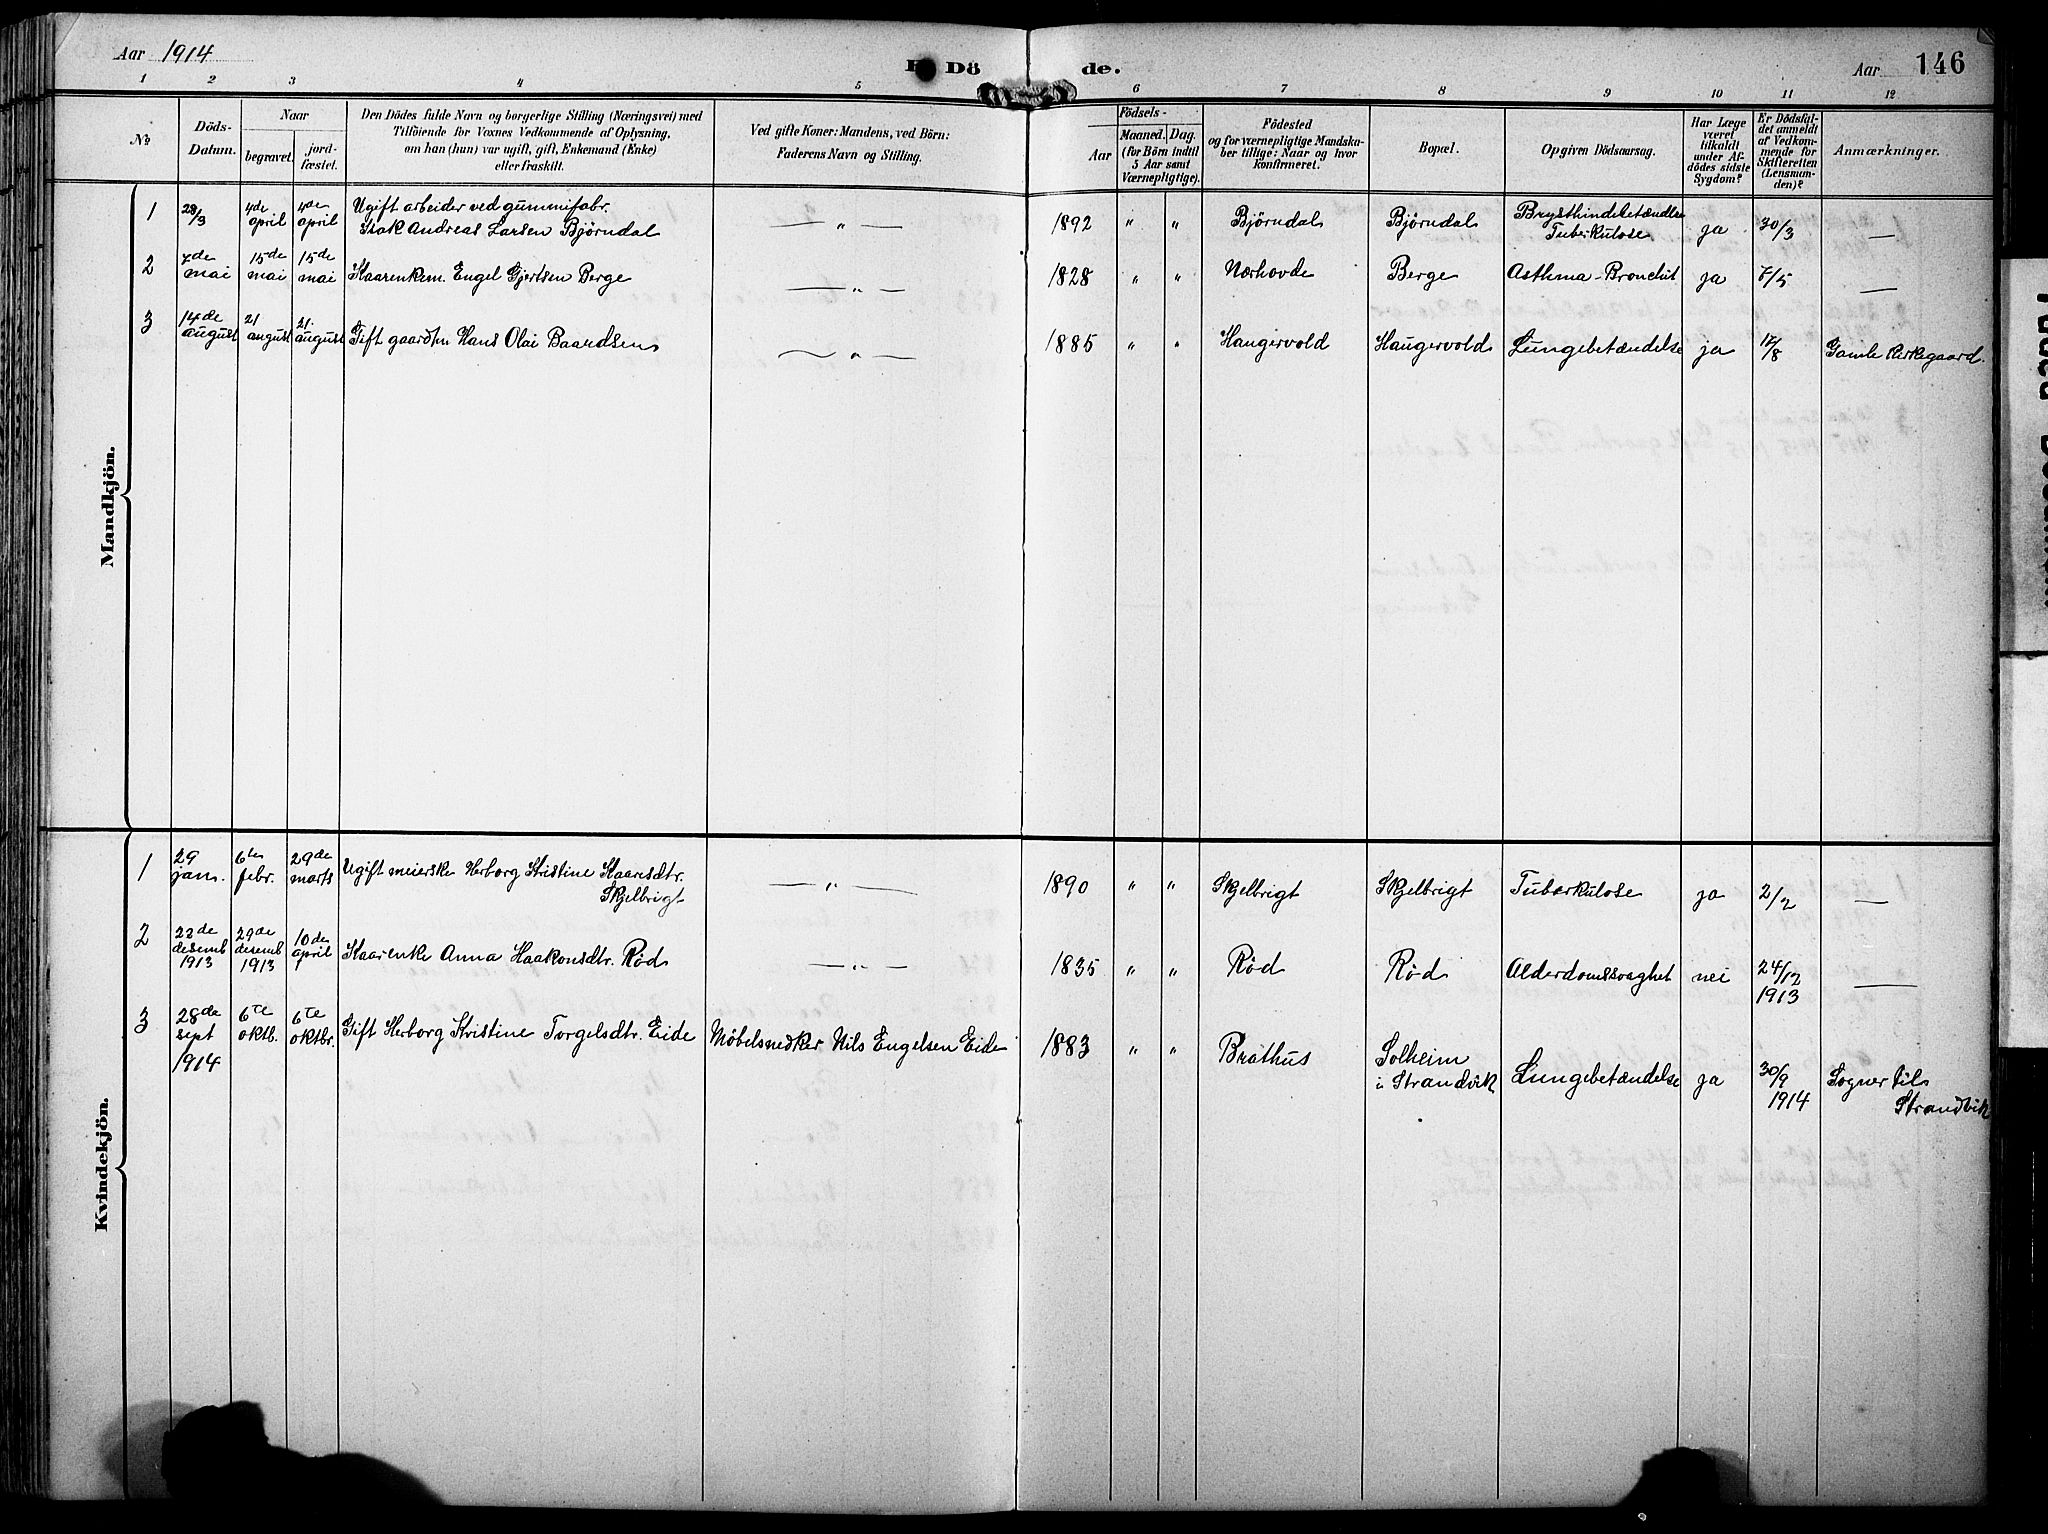 Aar 1914
Dö
de.
Aar
146
1 2 3 4 5 6 7 8 9 10 11 12
No
Döds-
Datum.
Naar
begravet.
jord-
fæstet.
Den Dödes fulde Navn og borgerlige Stilling (Næringsvei) med
Tilföiende for Voxnes Vedkommende af Oplysning,
om han (hun) var ugift, gift, Enkemand (Enke)
eller fraskilt.
Ved gifte Koner: Mandens, ved Börn:
Faderens Navn og Stilling.
Födsels-
Aar
Maaned. Dag.
(for Börn indtil
5 Aar samt
Værnepligtige).
Födested
og for værnepligtige Mandska-
ber tillige: Naar og hvor
konfirmeret.
Bopæl.
Opgiven Dödsaarsag.
Har Læge
været
tilkaldt
under Af-
dödes sidste
Sygdom?
Er Dödsfal-
det anmeldt
af Vedkom-
mende for
Skifteretten
(Lensman-
den)?
Anmærkninger.
Mandkjön.
1 28/3 4de april 4de april Ugift arbeider ved gummifabr.
Isak Andreas Larsen Bjørndal — „ — 1892 „ „ Bjørndal Bjørndal Brysthindebetændelse
Tuberkulose ja 30/3 —
2 7de mai 15de mai 15de mai Kaarenkem. Engel Gjertsen Berge — „ — 1828 „ „ Nærhovde Berge Asthma-Bronchit ja 7/5 —
3 14de august 21 august 21. august Gift gaardm Hans Olai Baardsen — „ — 1885 „ „ Haugervold Haugervold Lungebetændelse ja 17/8 Gamle Kirkegaard.
Kvindekjön.
1 29 jan. 6te febr. 29de marts Ugift meierske Herborg Kristine Kaaresdtr.
Skjelbrigt — „ — 1890 „ „ Skjelbrigt Skjelbrigt Tuberkulose ja 2/2 —
2 22de desemb 1913 29de desemb 1913 10de april Kaarenke Anna Haakonsdtr. Rød — „ — 1835 „ „ Rød Rød Alderdomssvaghet nei 24/12 1913 —
3 28de sept 1914 6te oktb. 6te oktbr. Gift Herborg Kristine Torgelsdtr. Eide Møbelsnedker Nils Engelsen Eide 1883 „ „ Bråthus Solheim
i Strandvik Lungebetændelse ja 30/9 1914 Sogner til
Strandvik